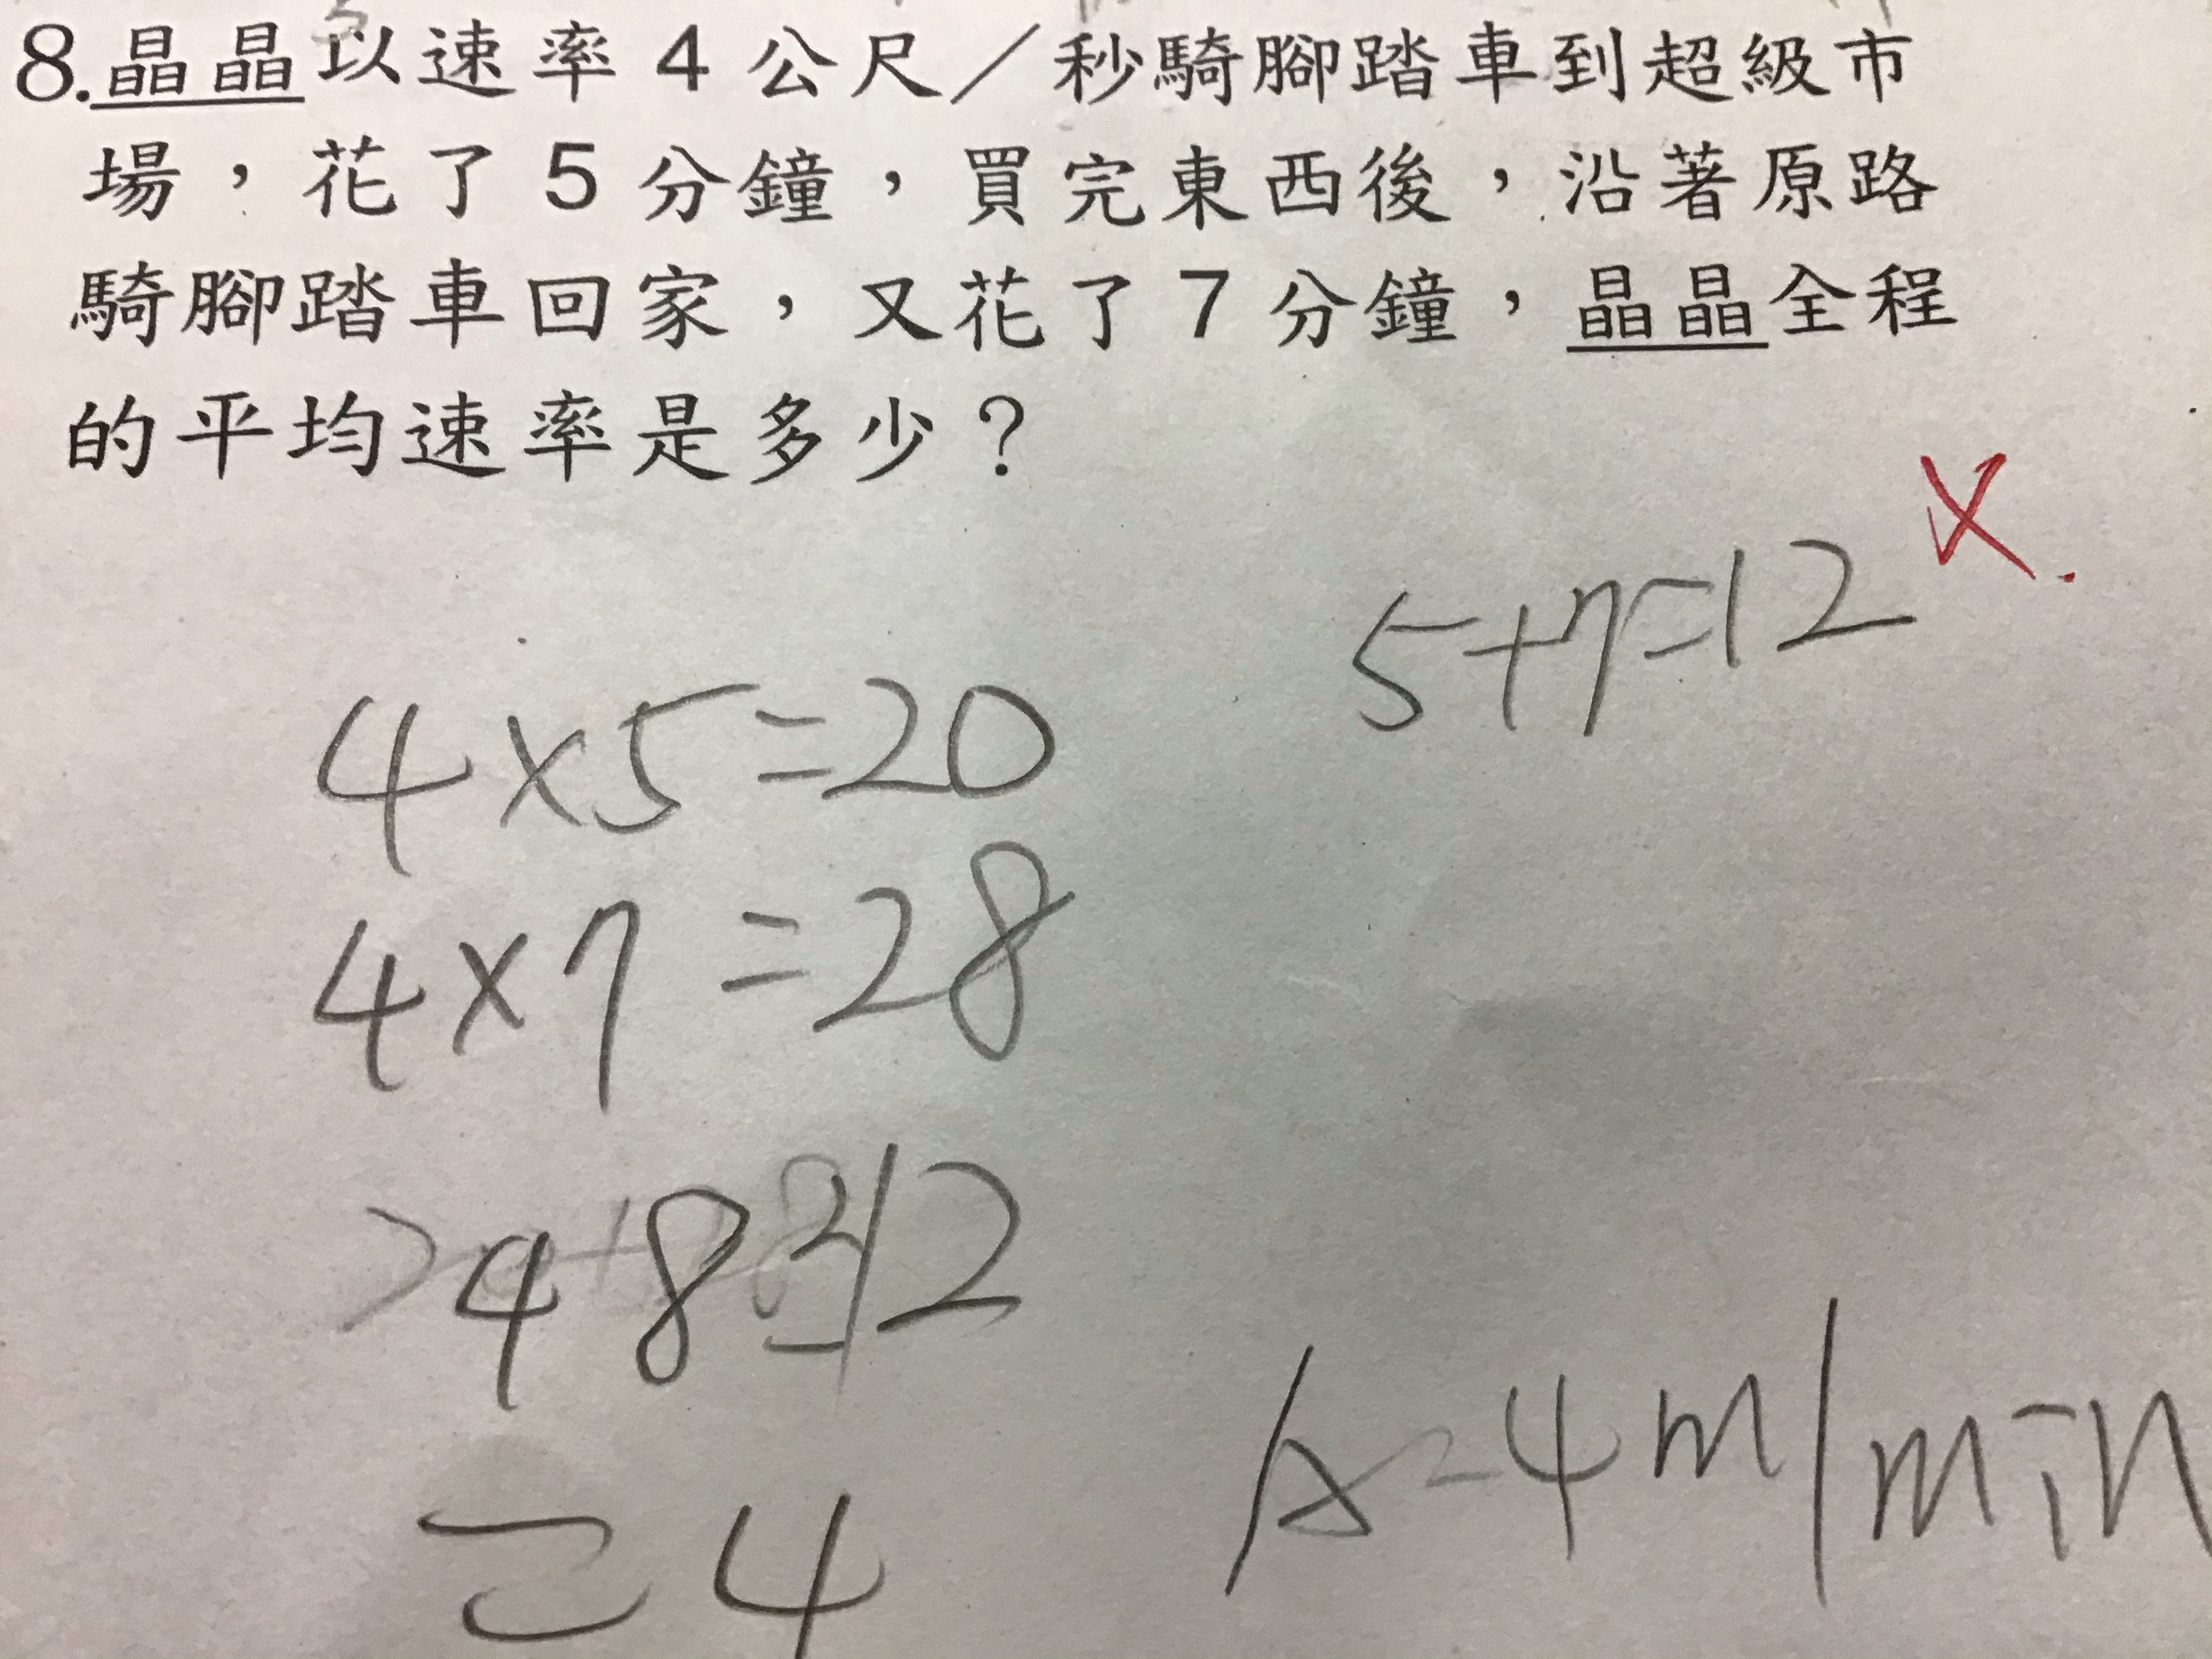 8.晶晶以速率4公尺/秒騎腳踏車到超級市
場,花了5分鐘,買完東西後,沿著原路
騎腳踏車回家,又花了7分鐘,晶晶全程
的平均速率是多少?
5+7=12
4×5=20
4×7=28
48÷12
=4
A=4m/min